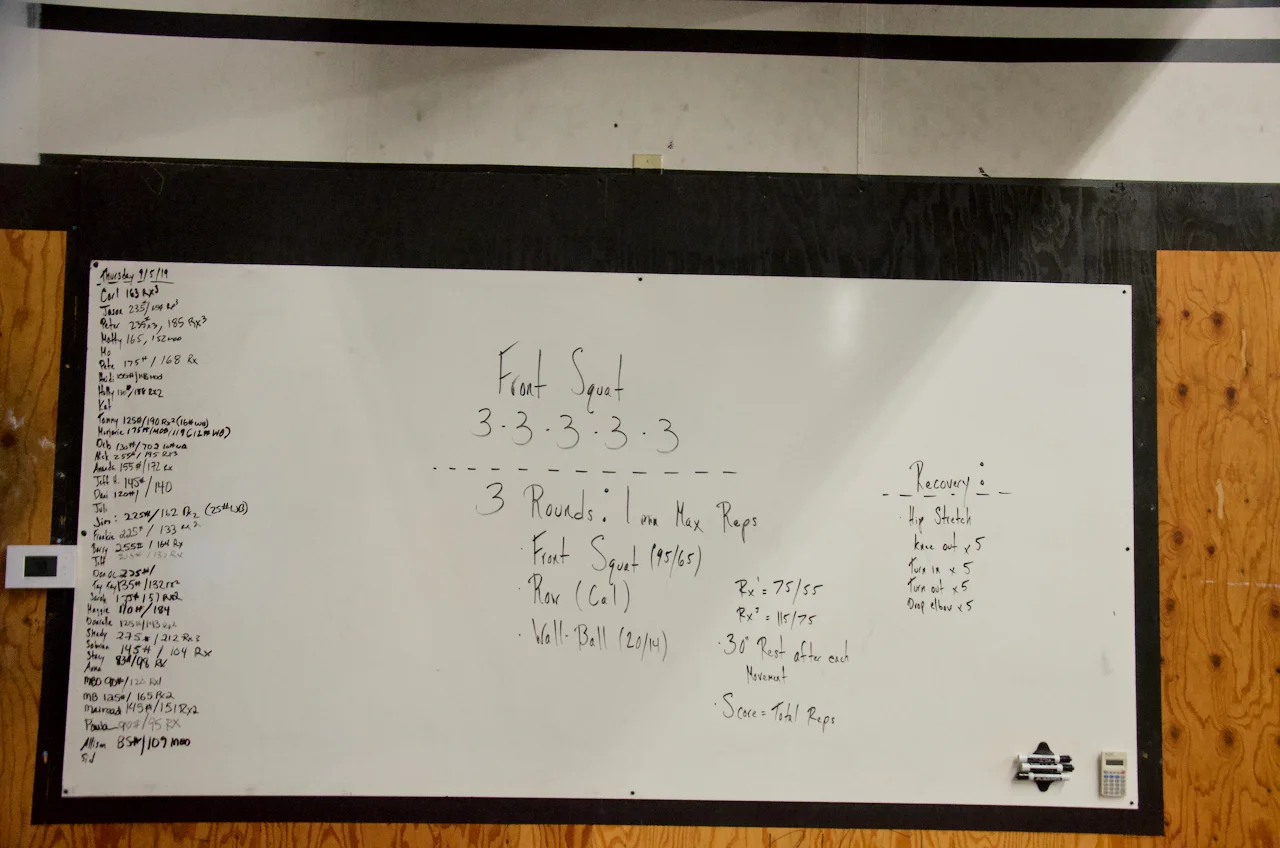 Thursday 9/5/19
Carl 163 Rx³
Jason 235#/
Peter 235#x3, 185 Rx3
Matty 165, 152 mod
Mo
Pete 175# / 168 Rx
Heidi
Holly 110#/188 Rx2
Kat
Tammy 125#/190 Rx2 (16# WB)
Marjorie 175#/MOD/119 (12# WB)
Orb 130#/702
Nick 255#/195 Rx3
Amanda 155#/172 Rx
Jeff H. 145#
Dani 120#/ /140
Juli
Jim: 225#/162 Rx2 (25# WB)
Frankie 225# / 133 Rx2
Barry 255# / 164 Rx
Tiff
225#/
Kay Kay 135#/132 Rx2
Sarah 175# 157 Rx2
Maggie 110#/184
Danielle 125#/143 Rx2
Shedy 275#/212 Rx3
Sabrina 145# / 104 Rx
Stacy 83#/98 Rx
Anna
MBD 90#/120 Rx1
MB 125#/ 165 Rx2
Mairead 145#/151 Rx2
Paula 90#/95 RX
Allison 85#/109 MOD
Sid
Front Squat
3·3·3·3·3
3 Rounds: 1 min Max Reps
· Front Squat (95/65)
· Row (Cal)
· Wall-Ball (20/14)
Rx¹ = 75/55
Rx² = 115/75
· 30" Rest after each
Movement
· Score = Total Reps
Recovery:
· Hip Stretch
Knee out x 5
Turn in x 5
Turn out x 5
Drop elbow x 5